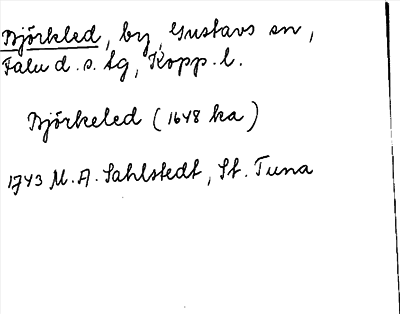 Björkled, by, Gustavs sn,
Falu d. s. tg, Kopp. l.
Björkeled (1648 ka)
1743 M. A. Sahlstedt, St. Tuna